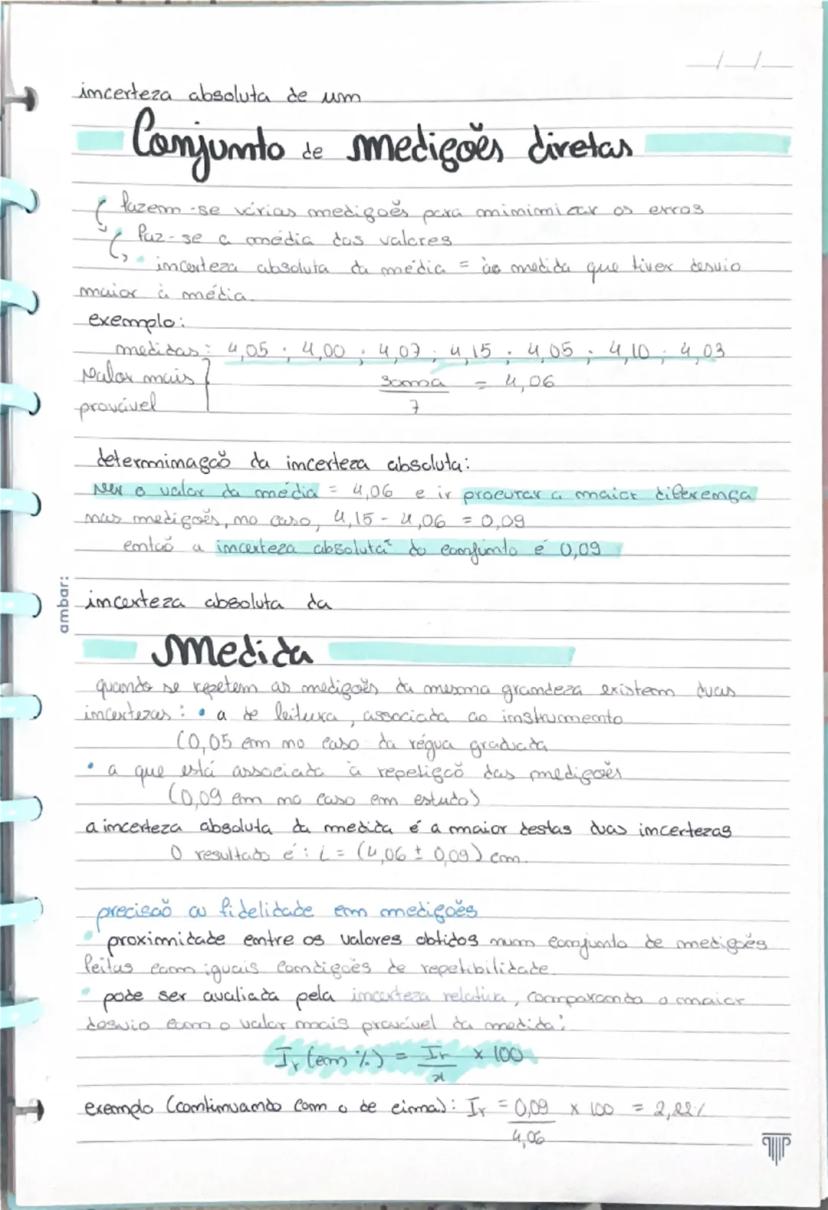 __/__/__
incerteza absoluta de um
Conjunto de medições diretas
fazem-se várias medições para minimizar os erros
faz-se a média dos valores
• incerteza absoluta da média = à medida que tiver desvio
maior à média.
exemplo:
medidas: 4,05 ; 4,00 ; 4,07 ; 4,15 ; 4,05 ; 4,10 ; 4,03
valor mais
provável
soma = 4,06
7
determinação da incerteza absoluta:
ver o valor da média = 4,06 e ir procurar a maior diferença
nas medições, no caso, 4,15 - 4,06 = 0,09
então a incerteza absoluta do conjunto é 0,09
ambar:
incerteza absoluta da
Medida
quando se repetem as medições da mesma grandeza existem duas
incertezas: • a de leitura, associada ao instrumento
(0,05 cm no caso da régua graduada
• a que está associada à repetição das medições
(0,09 cm no caso em estudo)
a incerteza absoluta da medida é a maior destas duas incertezas
O resultado é: L = (4,06 ± 0,09) cm.
precisão ou fidelidade em medições
• proximidade entre os valores obtidos num conjunto de medições
feitas com iguais condições de repetibilidade.
• pode ser avaliada pela incerteza relativa, comparando o maior
desvio com o valor mais provável da medida:
Ir (em %) = Ir × 100
x
exemplo (continuando com o de cima): Ir = 0,09 × 100 = 2,22%
4,06